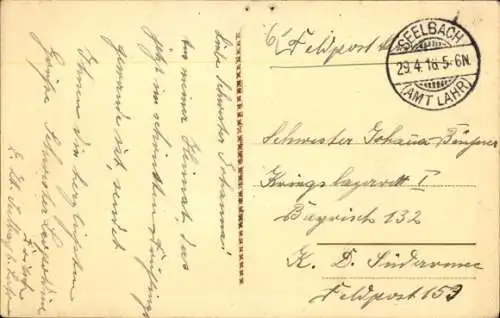 Liebe Schwester Johanna!
Aus meiner Heimat, das
jetzt im schönsten Frühlings
gewande ist, sendet
Ihnen die herzlichsten
Grüße Schwester Leopoldine
Feldpost
SEELBACH
29.4.16.5-6N.
(AMT LAHR)
Schwester Johanna
Kriegslazarett I
Bayrisch 132
K. D. Südarmee
Feldpost 159